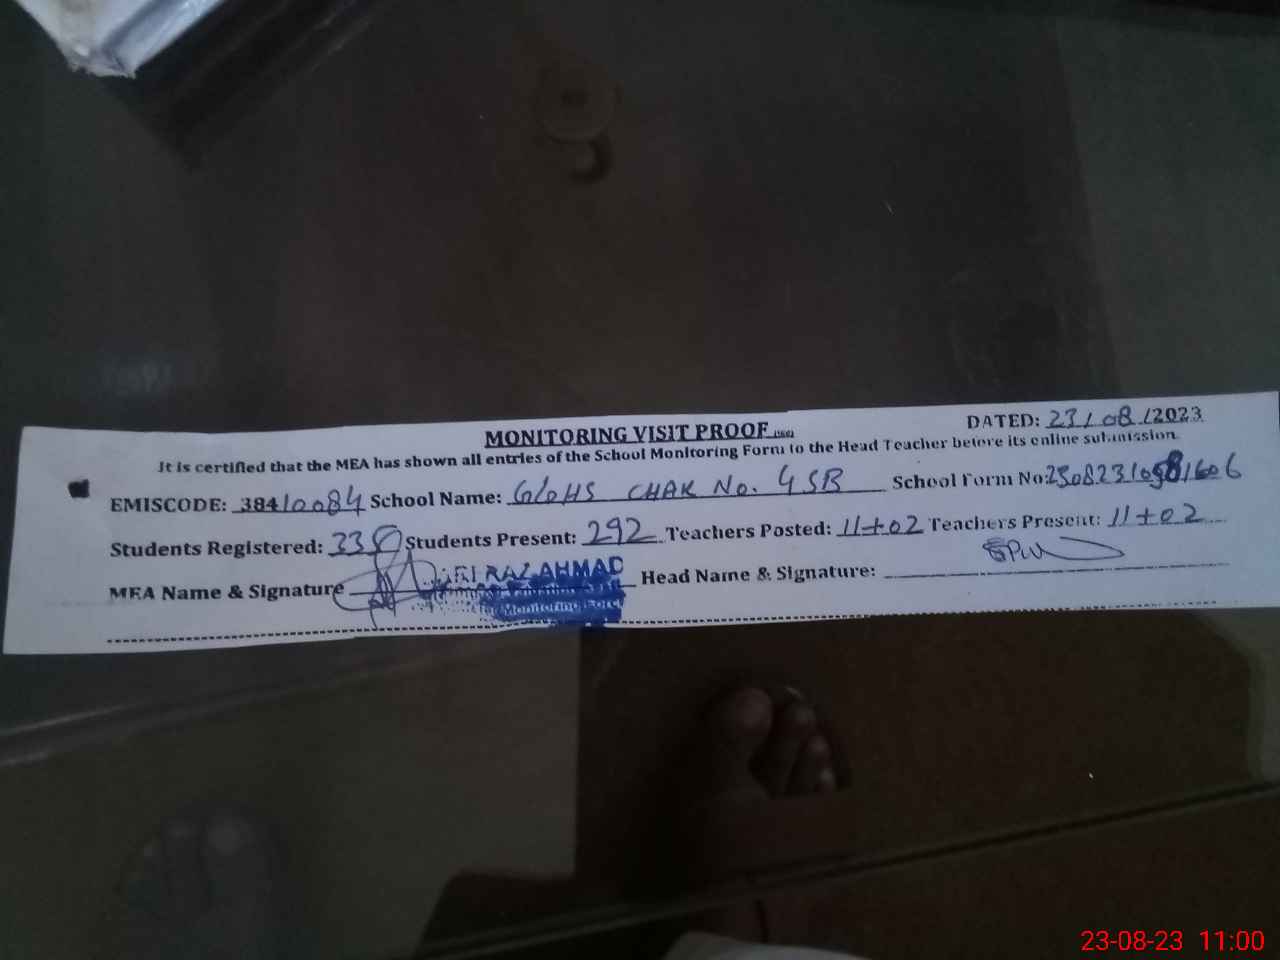 MONITORING VISIT PROOF
DATED: 23/08/2023
It is certified that the MEA has shown all entries of the School Monitoring Form to the Head Teacher before its online submission.
EMISCODE: 38410084 School Name: GGHS CHAK No. 4 SB School Form No:
Students Registered: Students Present: 292 Teachers Posted: 11+02 Teachers Present: 11+02
MEA Name & Signature AHMAD Head Name & Signature:
Monitoring Force
23-08-23 11:00